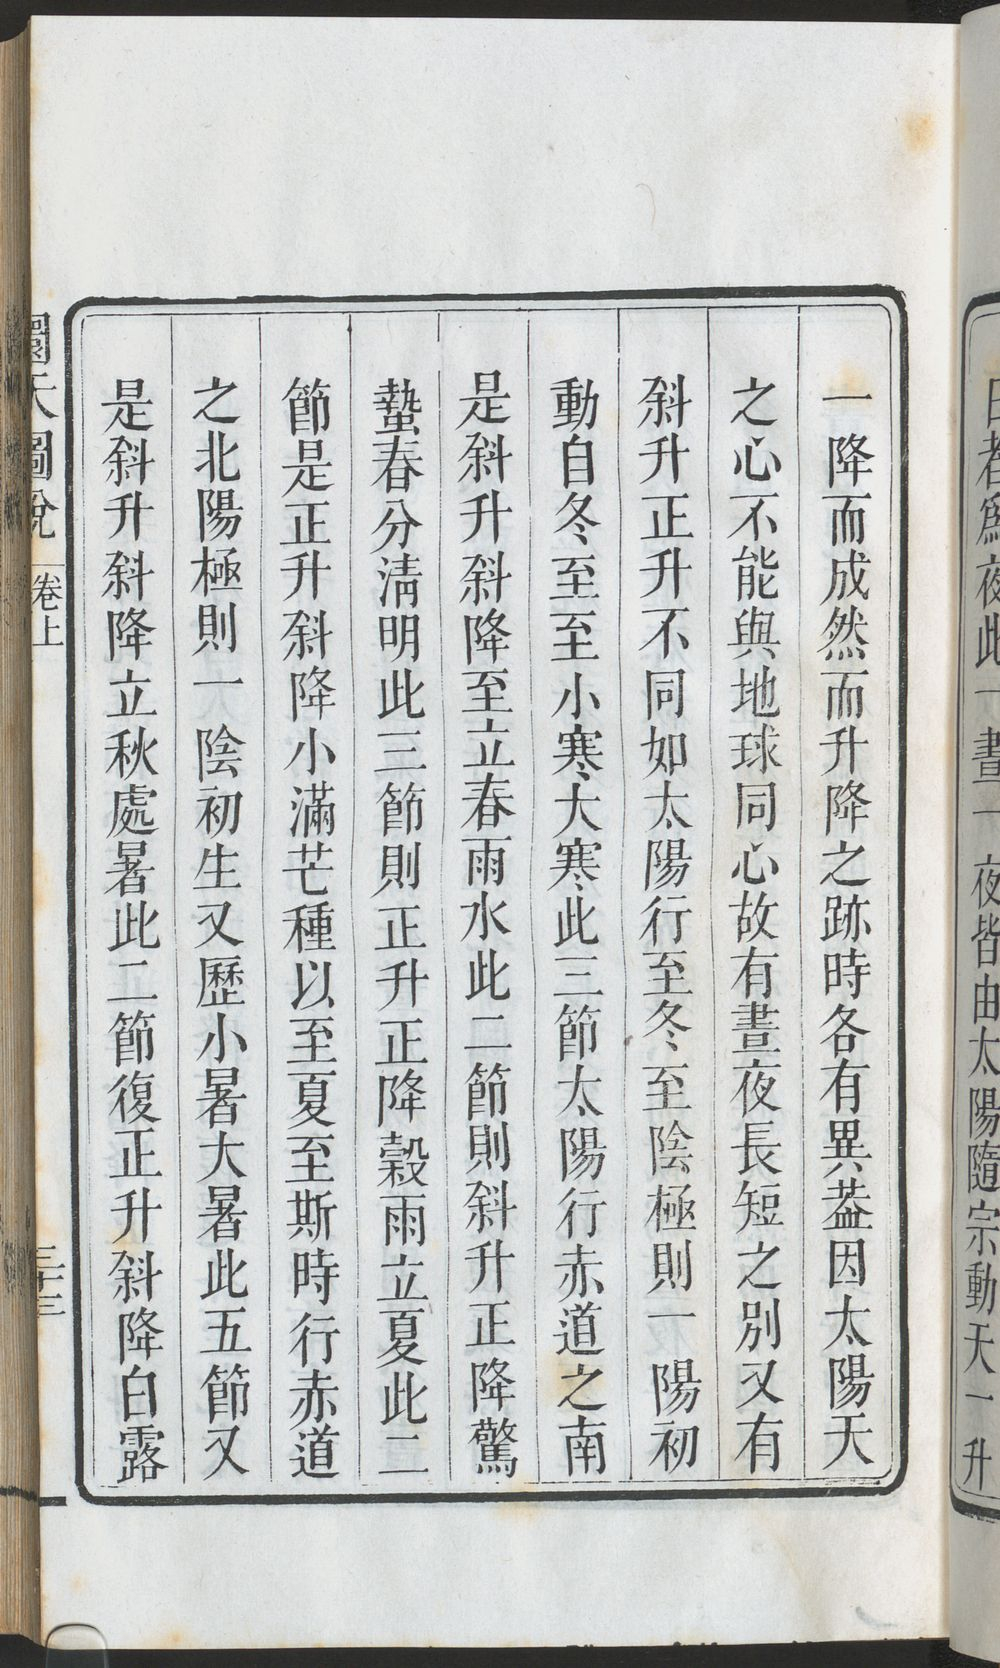 日者爲夜此一晝一夜皆由太陽隨宗動天一升
一降而成然而升降之跡時各有異葢因太陽天
之心不能與地球同心故有晝夜長短之別又有
斜升正升不同如太陽行至冬至陰極則一陽初
動自冬至至小寒大寒此三節太陽行赤道之南
是斜升斜降至立春雨水此二節則斜升正降驚
蟄春分淸明此三節則正升正降穀雨立夏此二
節是正升斜降小滿芒種以至夏至斯時行赤道
之北陽極則一陰初生又歷小暑大暑此五節又
是斜升斜降立秋處暑此二節復正升斜降白露
圜天圖說
卷上
三十三